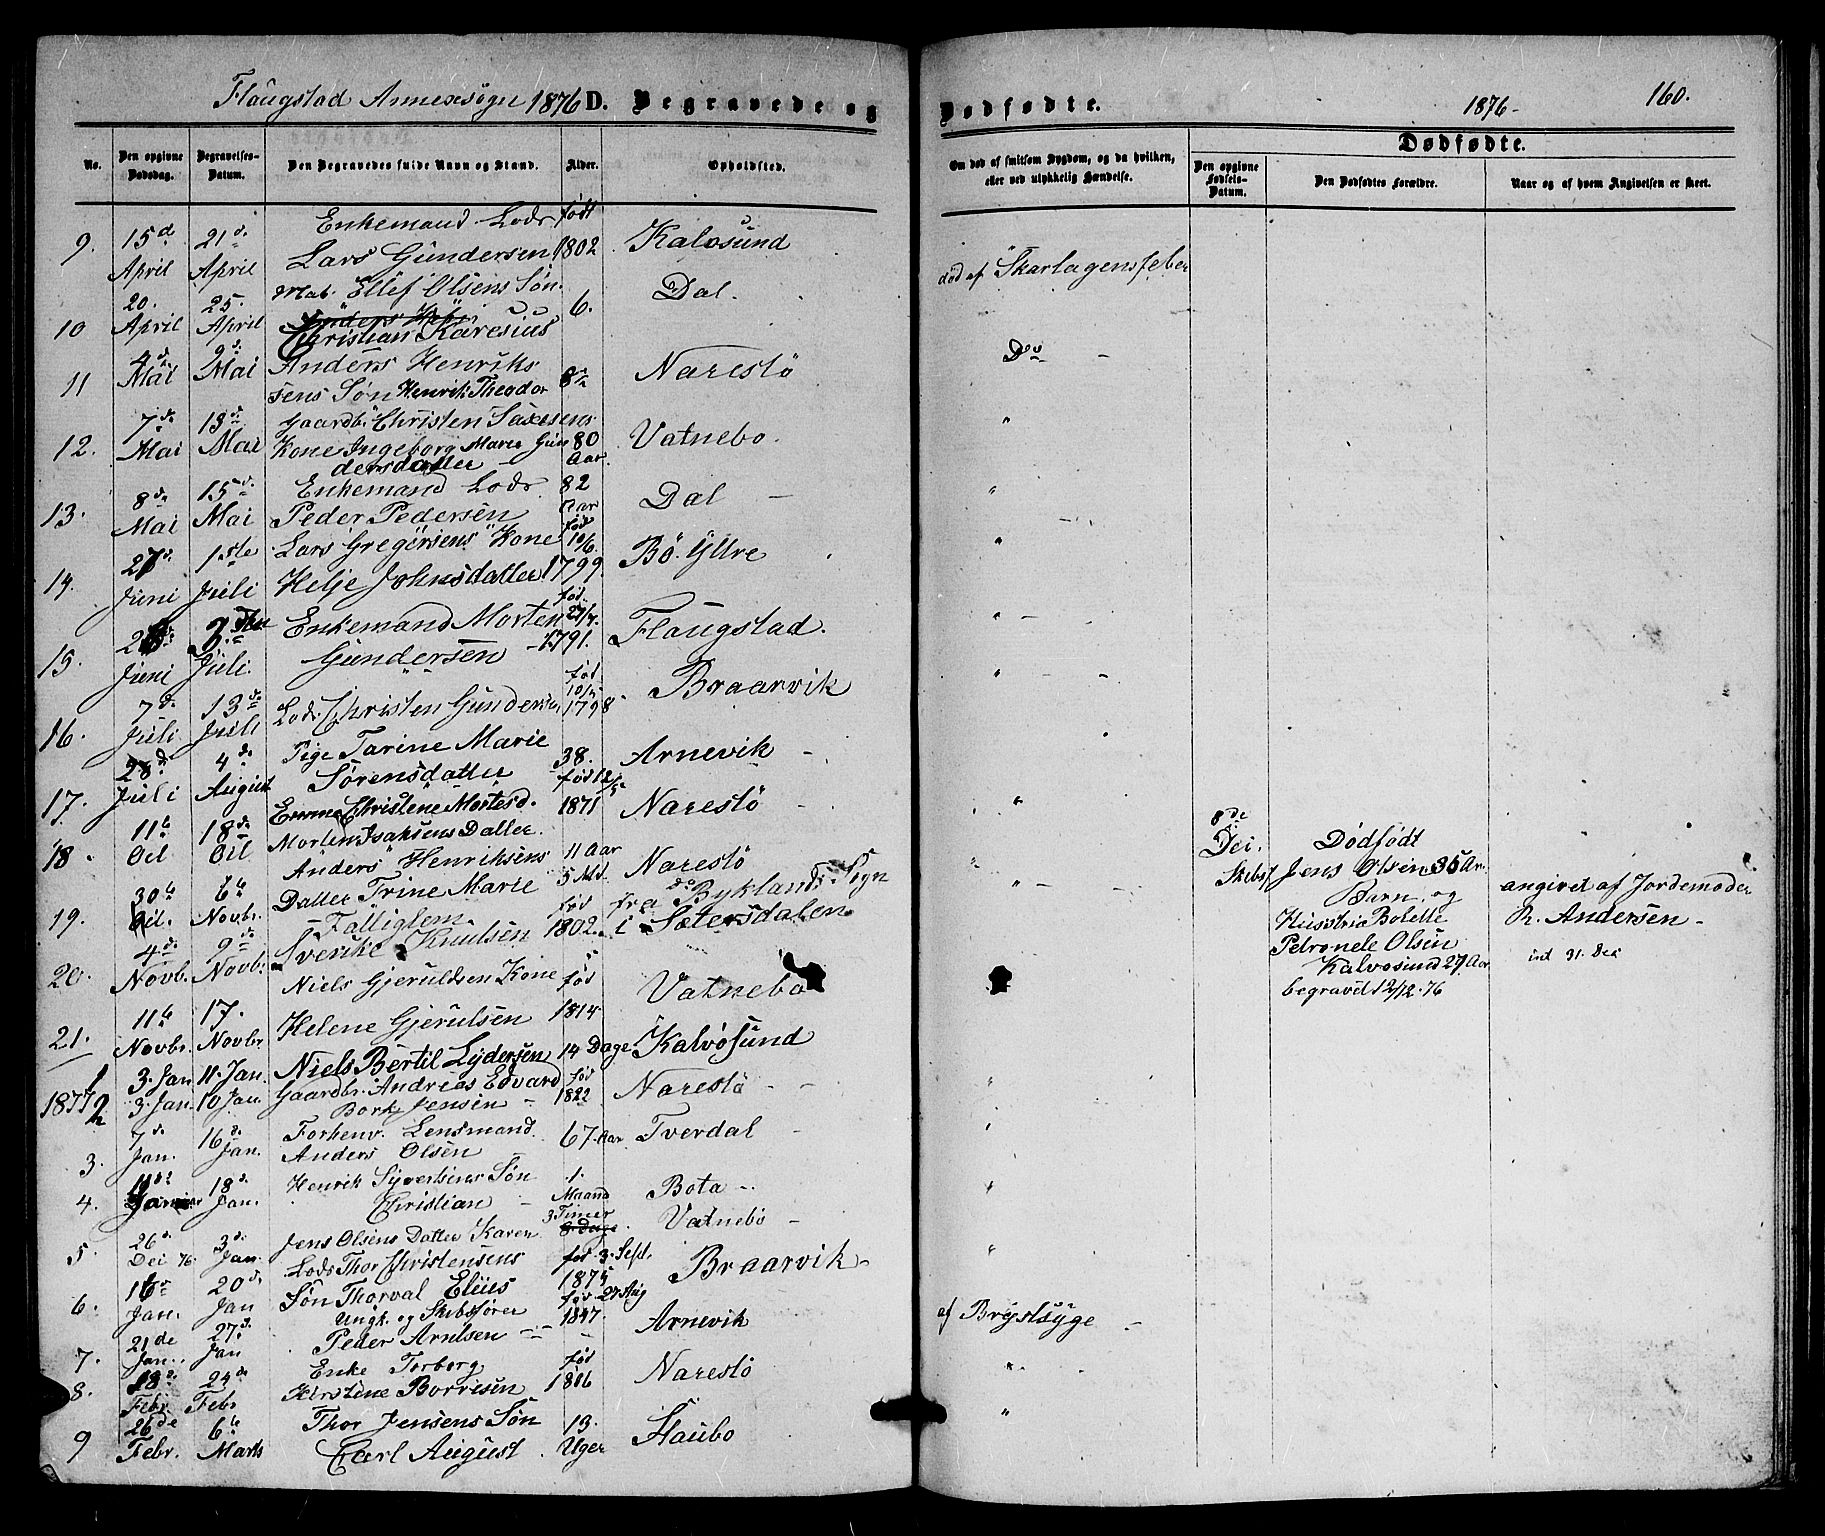 Flaugstad Annexsogn 1876 D. Begravede og
Dødfødte. 1876- 160.
No. Den opgivne Dødsdag. Begravelses-Datum. Den Begravedes fulde Navn og Stand. Alder. Opholdsted.
Om død af smitsom Sygdom, og da hvilken, eller ved ulykkelig Hændelse. Dødfødte. Den opgivne Fødsels-Datum. Den Dødfødtes Forældre. Naar og af hvem Angivelsen er skeet.
Enkemand Lods født
9. 15d April 21d April Lars Gundersen 1802 Kalvøsund
Mat. Ellef Olsens Søn Dal. død af Skarlagensfeber
10 20. April 25. April Christian Karesius 6.
11 4de Mai 9de Mai Anders Henriks Narestö Do -
sens Søn Henrik Theodor 8
12. 7de Mai 13de Mai Gaardb. Christen Saxesens
Kone Ingeborg Marie Gun 80 Vatnebo.
dersdatter Aar
13. 8de Mai 15de Mai Enkemand Lods 82 Dal -
Peder Pedersen Aar
14. 27d. Juni 1ste Juli Lars Gregersens Kone fød 10/6. Bö. Yttre
Helje Johnsdatter 1799
15. Juni Juli Enkemand Morten fød 27/7. Flaugstad.
Gundersen 1791.
16. 7de Juli 13de Juli Lods Christen Gundersen fød 1798 Braarvik
17. 28d Juli 4de August Pige Tarine Marie 38. Arnevik -
Sørensdatter
18. 11te Oct 18de Oct Emma Christene Mortesd. fød 12/5 1871 Narestö -
Morten Isaksens Datter.
19. 30te Oct. 6te Novbr. Anders Henriksens 11 Aar Narestö
Datter Trine Marie 5 Md.
20. 4de Novb. 9de Novb. Fattiglem fød fra Byklands Sogn
Svenke Knutsen 1802. i Sætersdalen
21. 11te Novbr. 17. Novbr. Niels Gjeruldsen Kone fød Vatnebo
Helene Gjerulsen 1814
8de Dec. Dødfødt
Skibsf. Jens Olsen 35 Ar.
Barn og
Husstria Bolette
Petronele Olsen
Kalvøsund 27 Aar
begravd 12/12. 76
angivet af Jordemoder
R. Andersen -
ind 31. Dec
1877 1 3. Jan 11. Jan. Niels Bertil Lydersen 14 Dage Kalvøsund
2 3. Jan. 10 Jan. Gaardbr. Andrias Edvard fød Narestö - -
Bork Jensen - 1822
3. 7de Jan. 16d. Jan. Forhenv. Lensmand 67 Aar Tverdal -
Anders Olsen
4. Januar 18d. Jan. Henrik Syvertsens Søn 1. Maand Bota -
Christian -
5. 26d. Dec 76. 3d. Jan. Jens Olsens Datter Karen 3 Timer Vatnebo -
6. 16d Jan. 20de Jan Lods Thor Christensens fød 3. Sept. Braarvik -
Søn Thorval Elius 1875
7. 21de Jan. 27d. Jan Ungk. og Skibsfører fød 27 Aug Arnevik af Brystsyge -
Peder Arntsen 1847
8. 18de Febr. 24de Febr Enke Torborg fød Narestö
Kirstine Borresen 1816
9 26de Febr. 6te Marts Thor Jensens Søn 13. Staubo
Carl August Uger